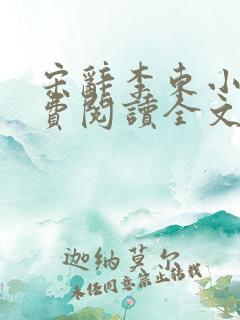 宋辭李東小
費閱讀全文
迦納莫尔
未经同意禁止转载